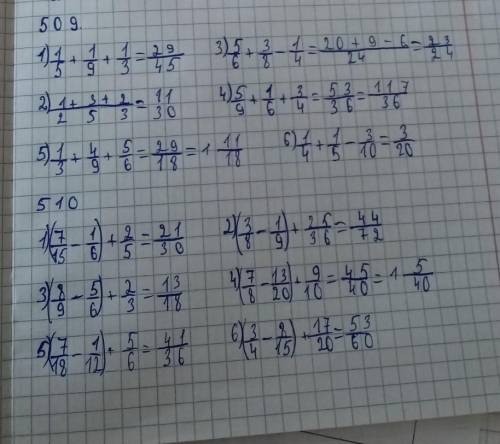 509.
1) 1/5 + 1/9 + 1/3 = 29/45
3) 5/6 + 3/8 - 1/4 = 20+9-6/24 = 23/24
2) 1+3+2/2 5 3 = 11/30
4) 5/9 + 1/6 + 3/4 = 53/36 = 117/36
5) 1/3 + 4/9 + 5/6 = 29/18 = 1 11/18
6) 1/4 + 1/5 - 3/10 = 3/20
510
1) (7/15 - 1/6) + 2/5 = 21/30
2) (3/8 - 1/9) + 25/36 = 44/72
3) (8/9 - 5/6) + 2/3 = 13/18
4) (7/8 - 13/20) + 9/10 = 45/40 = 1 5/40
5) (7/18 - 1/12) + 5/6 = 41/36
6) (3/4 - 8/15) + 17/20 = 53/60